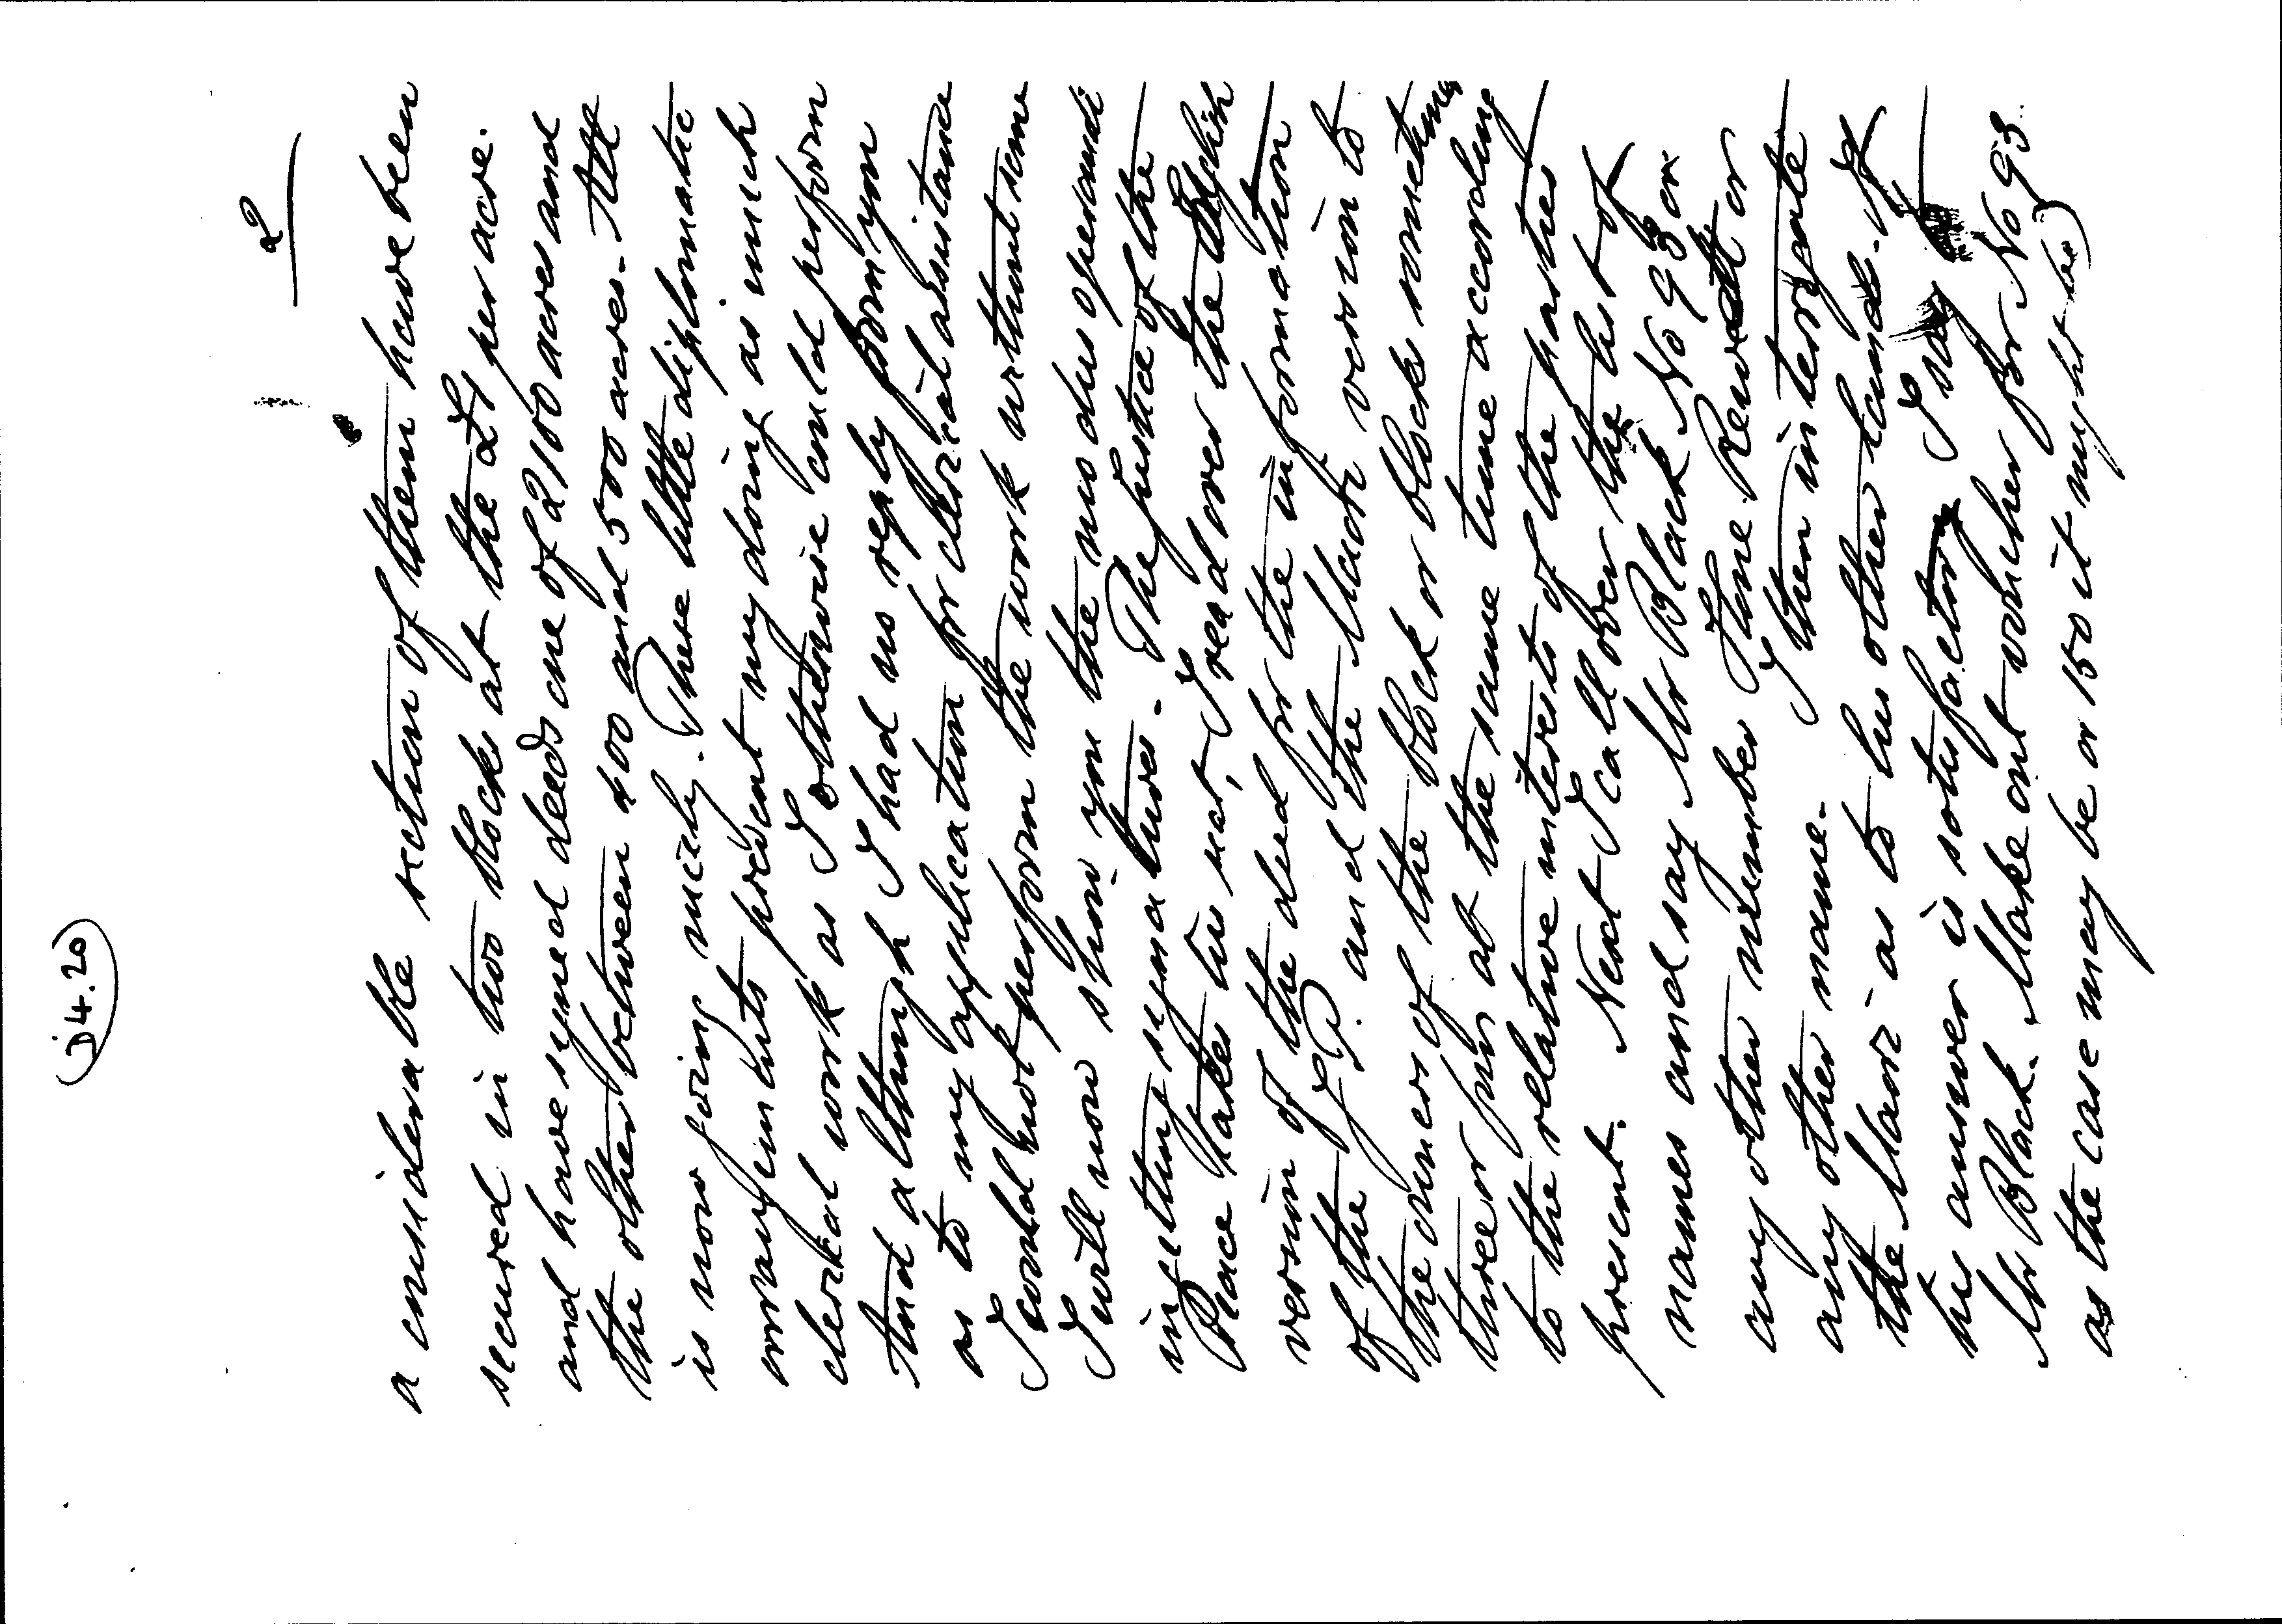 J 4.20
2
a considerable section of them have been
secured in two blocks at the £1 per acre.
and have signed deeds one of 2100 acres and
the other between 400 and 500 acres. All
is now going nicely. These little diplomatic
arrangements prevent my doing as much
clerical work as I otherwise could perform
And although I had no reply from you
as to my application for clerical assistance
I could not perform the work without some
I will now show you the modus operandi
in getting signatures. The Justice of the
Peace takes his seat, I read over the English
version of the deed for the information
of the J.P. and the Maori version to
the owners of the block or blocks sometimes
three or four at the same time according
to the relative interests of the parties
present. Next I call over the list of
names and say Mr Black No 93 or
any other number Hone Rewiti or
any other name. I then interrogate
the Maori as to his other lands. If
his answer is satisfactory I say
Mr Black. Make out voucher for No 93
as the case may be or 150 it might be)